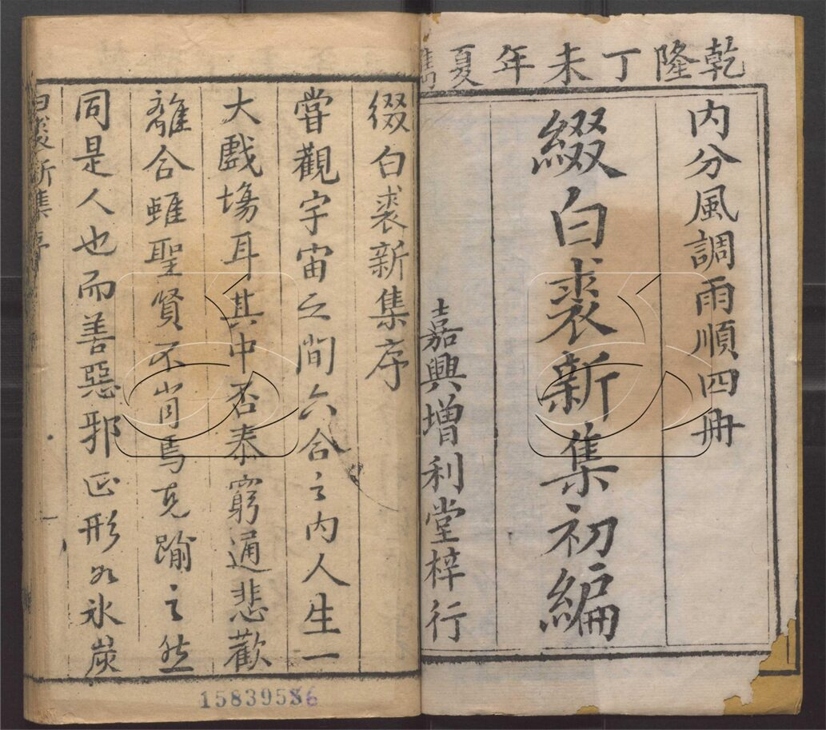 乾隆丁未年夏鐫
內分風調雨順四冊
綴白裘新集初編
嘉興增利堂梓行
綴白裘新集序
嘗觀宇宙之間六合之内人生一
大戲塲耳其中否泰窮通悲歡
離合雖聖賢不肖焉克踰之然
同是人也而善惡邪正形如氷炭
白裘新集序
15839586